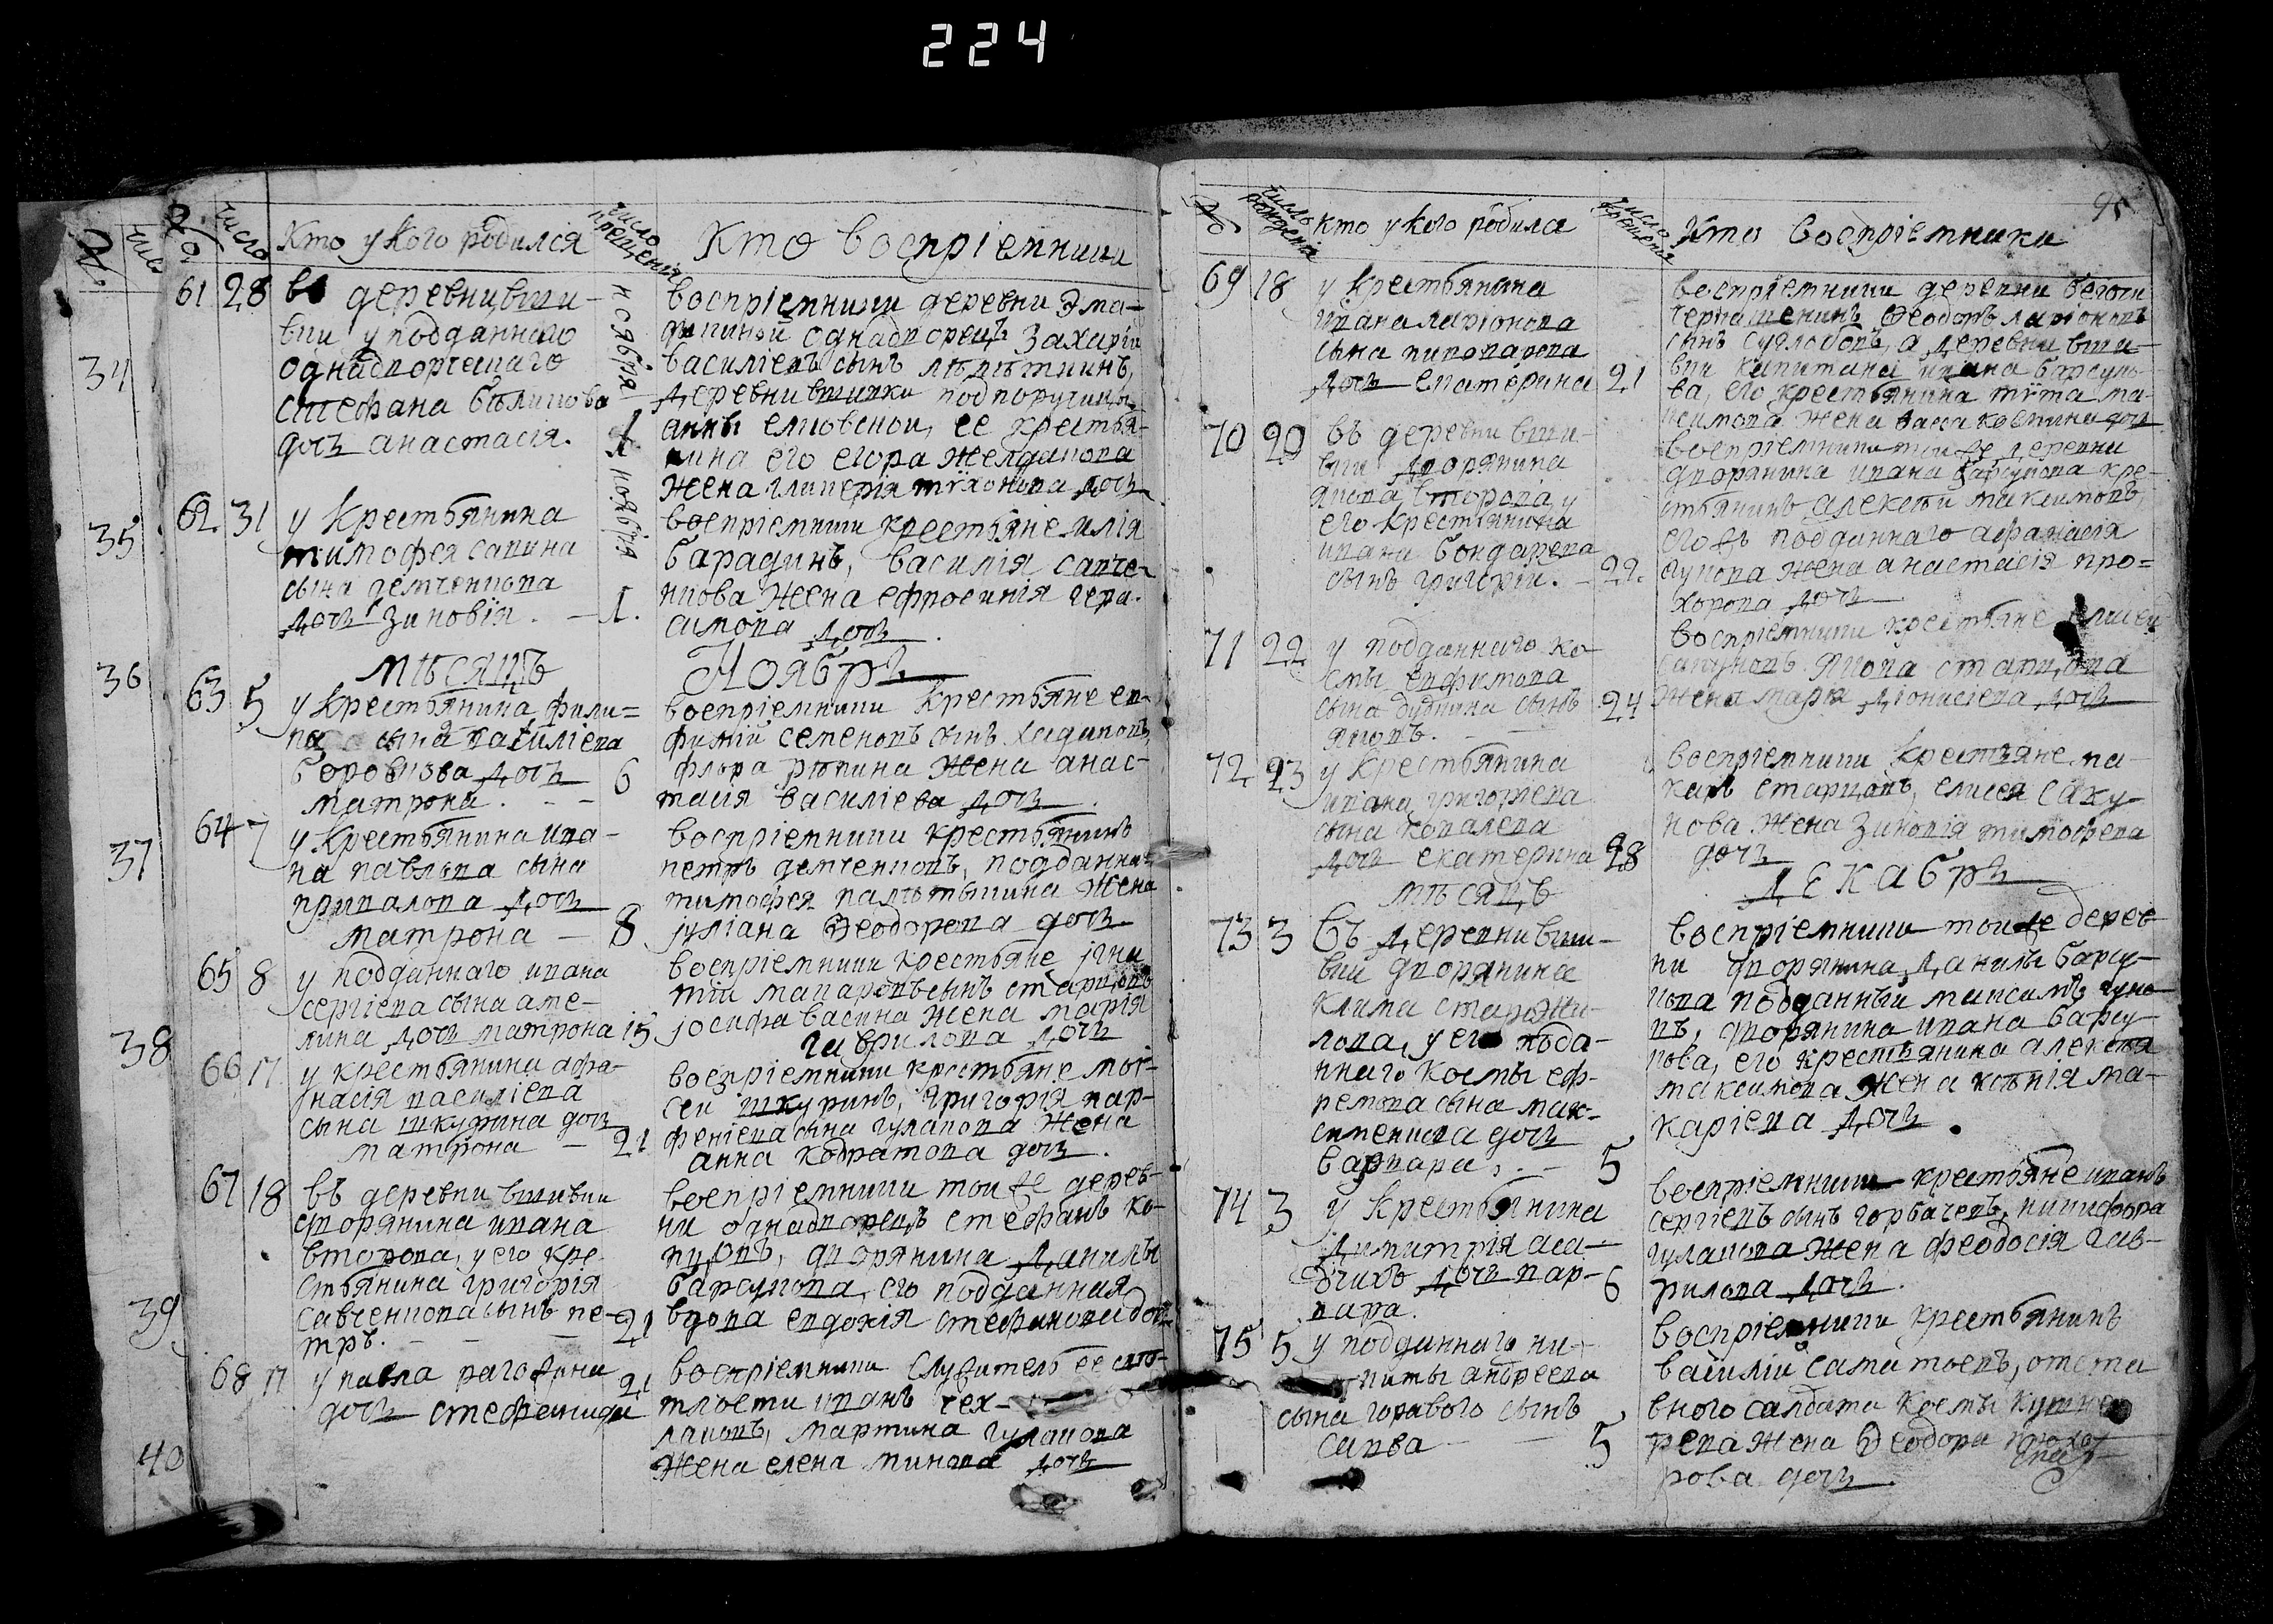 224
№ число Кто у кого родился число крещенія Кто воспріемники
61 28 въ деревни вши-
вки у подданнаго
однадворческаго
стефана бѣликова
дочь анастасія.
ноября 1
воспріемники деревни
однадворецъ захарій
василіевъ сынъ
деревни вшивки подпоручицы
анны его егора
жена гликерія тихонова дочь
62 31 у крестьянина
тимофея савина
сына демченкова
дочь зиновія. — 1.
ноября
воспріемники крестьяне илія
барадинъ, василія савче-
нкова жена ефросинія гера-
симова дочь.
мѣсяцъ Ноябрь
63 5 у крестьянина фили-
па сына василіева
боровкова дочь 6
матрона. - -
воспріемники крестьяне ев-
фимій семеновъ сынъ
флора рюпина жена анас-
тасія василіева дочь.
64 7 у крестьянина ива-
на павлова сына
привалова дочь
матрона — 8
воспріемники крестьянинъ
петръ демченковъ, подданна
тимофея жена
іуліана Ѳеодорова дочь
65 8 у подданнаго ивана
сергіева сына аме-
лина дочь матрона 15
воспріемники крестьяне игна
тій макаровъ сынъ старцовъ
іосифа васина жена марія
гаврилова дочь
66 17 у крестьянина афа-
насія василіева
сына шкурина дочь
матрона — 21
воспріемники крестьяне мои-
сей шкуринъ, григорія пар-
феніева сына гулакова жена
анна кодратова дочь.
67 18 въ деревни вшивки
дворянина ивана
второва, у его кре-
стьянина григорія
савченкова сынъ пе-
тръ. — — 21
воспріемники той же дерев-
ни однадворецъ стефанъ ко-
пуловъ, дворянина данилы
барсукова, его подданная
вдова евдокія стефанова дочь
68 17 у павла рагозина 21
дочь стефанида
воспріемники служитель ее свѣ-
тлости иванъ чех-
лаковъ, мартина гулакова
жена елена минова дочь
34
35
36
37
38
39
40
95
№ число рожденія кто у кого родился число крещенія Кто воспріемники
69 18 у крестьянина
ивана ларіонова
сына пивоварова
дочь екатерина 21
воспріемники деревни
черкашенинъ Ѳеодоръ ларіоновъ
сынъ суглобовъ, а деревни вши-
вки капитана ивана барсуко-
ва, его крестьянина тита ма-
ксимова жена васса космина дочь
70 20 въ деревни вши-
вки дворянина
якова второва, у
его крестьянина
ивана бондарева
сынъ григорій. — 22.
воспріемники той же деревни
дворянина ивана барсукова кре-
стьянинъ алексѣй максимовъ,
его жъ подданнаго афанасія
гукова жена анастасія про=
хорова дочь
71 22 у подданнаго ко-
смы евфимова
сына дудкина сынъ 24
яковъ. —
воспріемники крестьяне елисей
сакуновъ якова старцова
жена марія діонисіева дочь
72 23 у крестьянина
ивана григорьева
сына ковалева
дочь екатерина 28
воспріемники крестьяне, ма-
каръ старцовъ, елисея саку-
нова жена зиновія тимофеева
дочь
мѣсяцъ декабрь
73 3 въ деревни вши-
вки дворянина
клима сторожи-
лова, у его подда-
ннаго космы еф-
ремова сына мак-
сименкова дочь
варвара. — 5
воспріемники той же дерев-
ни дворянина данилы барсу-
кова подданный максимъ гуко-
въ, дворянина ивана барсу-
кова, его крестьянина алексѣя
максимова жена ксѣнія ма-
каріева дочь.
74 3 у крестьянина
димитрія аса-
дчихъ дочь вар- 6
вара.
воспріемники крестьяне иванъ
сергіевъ сынъ горбачевъ, никифора
гулакова жена феодосія гав-
рилова дочь.
75 5 у подданнаго ни-
киты андреева
сына горавого сынъ
савва — 5
воспріемники крестьянинъ
василій саматоевъ, отста
вного салдата космы
рева жена Ѳеодора
рова дочь